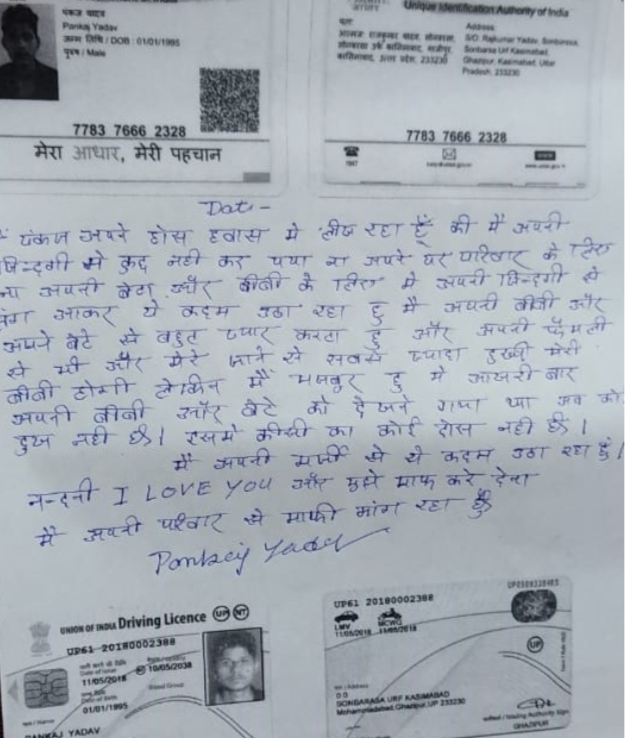 पंकज यादव
Pankaj Yadav
जन्म तिथि / DOB : 01/01/1995
पुरुष / Male
7783 7666 2328
मेरा आधार, मेरी पहचान
Unique Identification Authority of India
Address:
S/O: Rajkumar Yadav, Sonbarsa,
Sonbarsa Urf Kasimabad,
Ghazipur, Kasimabad, Uttar
Pradesh, 233230
7783 7666 2328
1947
Date -
पंकज अपने होस हवास मे लीख रहा हूँ की मै अपनी
जिन्दगी मे कुछ नही कर पाया ना अपने घर परिवार के लिए
ना अपनी बेटा और बीवी के लिए मे अपनी जिन्दगी से
तंग आकर ये कदम उठा रहा हु मै अपनी बीवी और
अपने बेटे से बहुत प्यार करता हु और अपनी फैमली
से भी और मेरे जाने से सबसे ज्यादा दुखी मेरी
बीवी होगी लेकिन मैं मजबूर हु मे आखरी बार
अपनी बीवी और बेटे को देखने गया था अब को
दुख नही है। इसमे कीसी का कोई दोस नही है।
मैं अपनी मर्जी से ये कदम उठा रहा हूँ।
नन्दनी I LOVE YOU और मुझे माफ करे देना
मे अपनी परिवार से माफी मांग रहा हूँ
Pankaj Yadav
UNION OF INDIA Driving Licence UP NT
UP61 20180002388
11/05/2018
10/05/2038
Blood Group
01/01/1995
PANKAJ YADAV
UP61 20180002388
LMV MCWG
11/05/2018 11/05/2018
UP
SONBARASA URF KASIMABAD
Mohammadabad,Ghazipur,UP 233230
GHAZIPUR